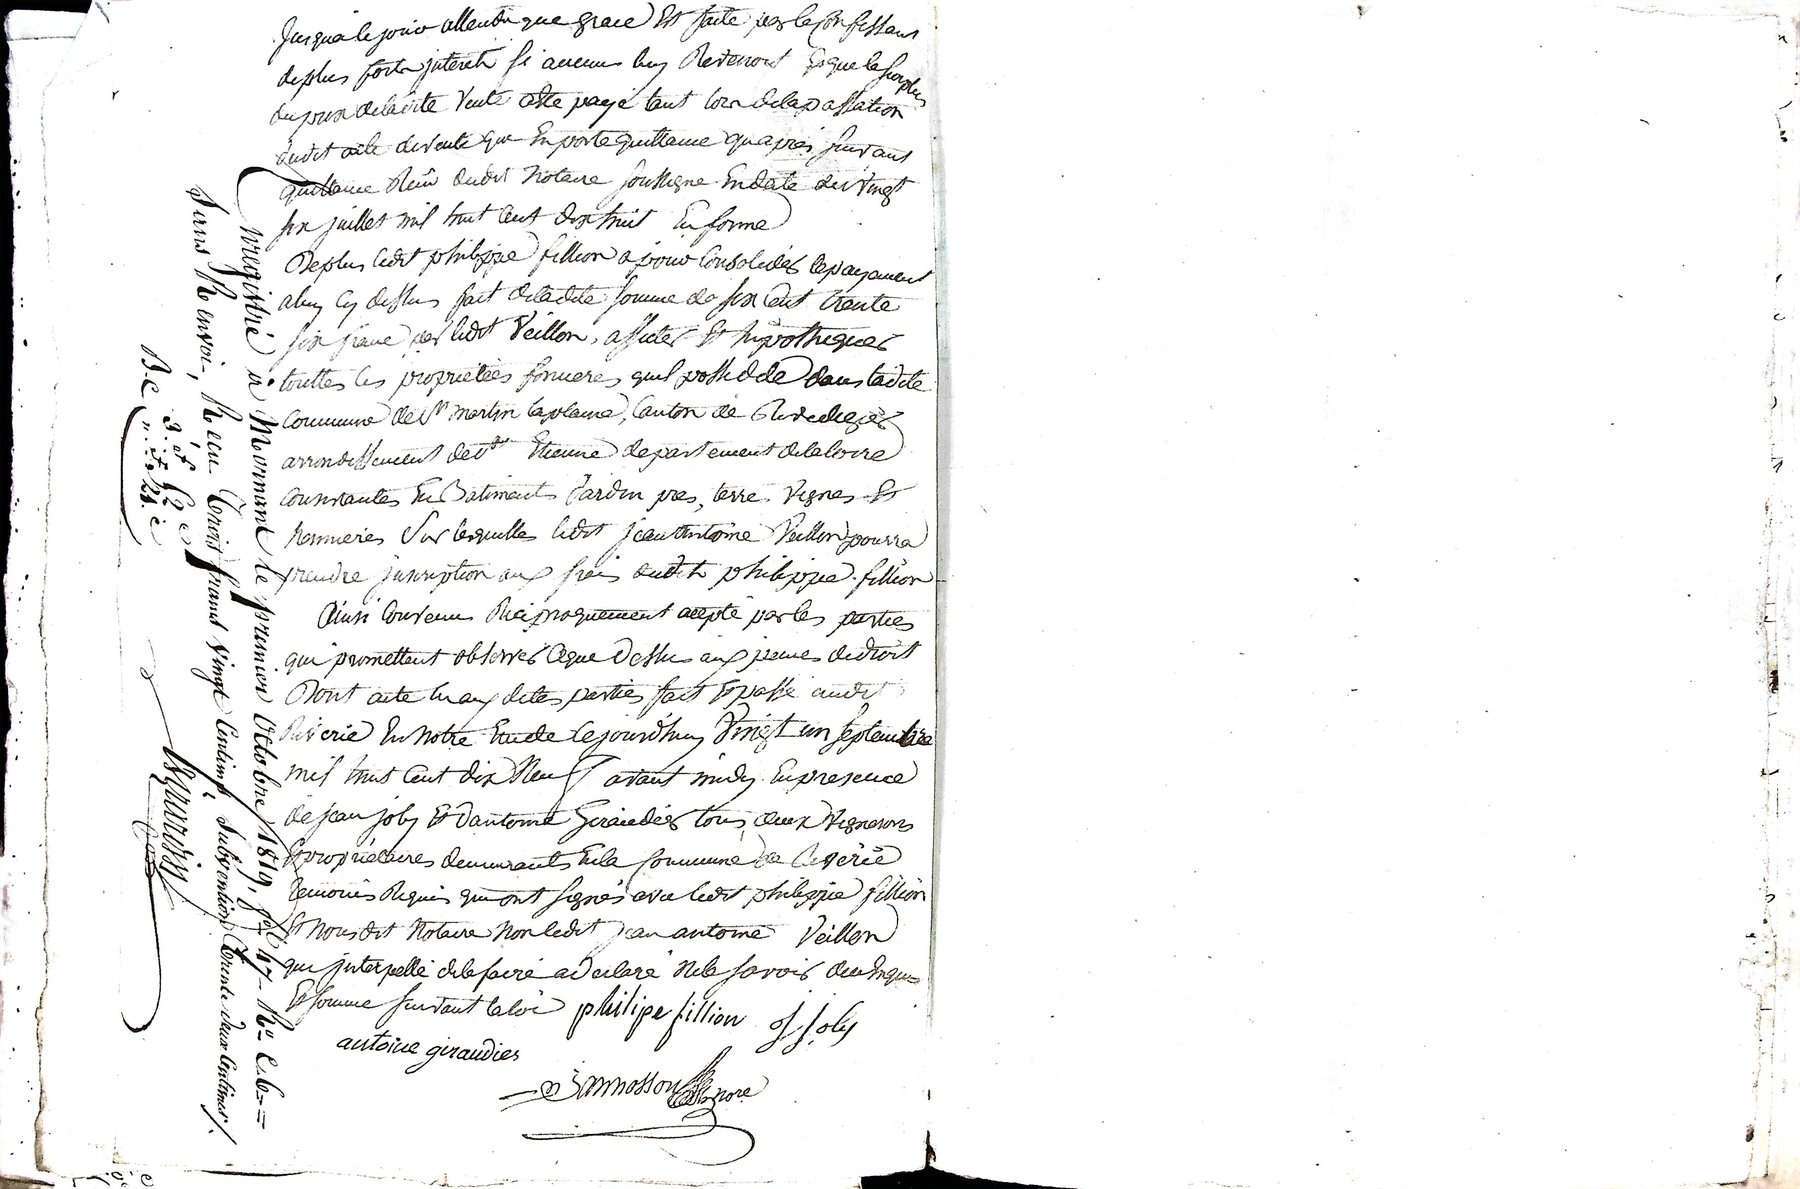 Jusqua le jour attendu que grace Est faite par le Confessant
de plus forts jnterets si aucuns luy Revenois Et que le surplus
du prix de la dite Vente a été payé tant lors de la passation
dudit acte de vente que En porte quittance qu'apres suivant
quittance Recüe dudit Notaire soussigné En date du Vingt
six juillet mil huit Cent dix huit En forme
De plus ledit philippe fillion a pour Consolider le payement
a luy Cy dessus fait de la dite somme de six Cent trente
six franc par ledit Veillon, affecter Et hypothequer
touttes les proprietées foncieres quil possede dans la dite
Commune de St martin la plaine, Canton de Rivedegier
arrondissement de St Etienne departement de la loire
Consistantes En Batiments Jardin pres, terre Vignes Et
sur lesquelles ledit jean Antoine Veillon pourra
prendre jnscription aux frais dudit philippe fillion
Ainsi Convenu Reciproquement acepté par les parties
qui promettent observer Ce que Dessus aux peines de droit
Dont acte lu aux dites parties fait Et passé audit
Riverie En Notre Etude Cejourdhuy Vingt un septembre
mil huit Cent dix Neuf avant midy En presence
de jean joly Et D'antoine Giraudier tous deux Vignerons
Et propriétaires demeurants En la Commune de Riverie
temoins Requis qui ont signés avec ledit philippe fillion
Et Nous dit Notaire Non ledit jean antoine Veillon
qui jnterpellé de le faire a declaré Ne le savoir de ce Enquis
Et sommé suivant la loi philipe fillion J Joly
antoine giraudier
nregistré à Mornant le premier Octobre 1819, fol. 47 Ro C. 6
sans Renvoi, Reçu Trois francs vingt Centimes, subvention Trente deux Centimes.